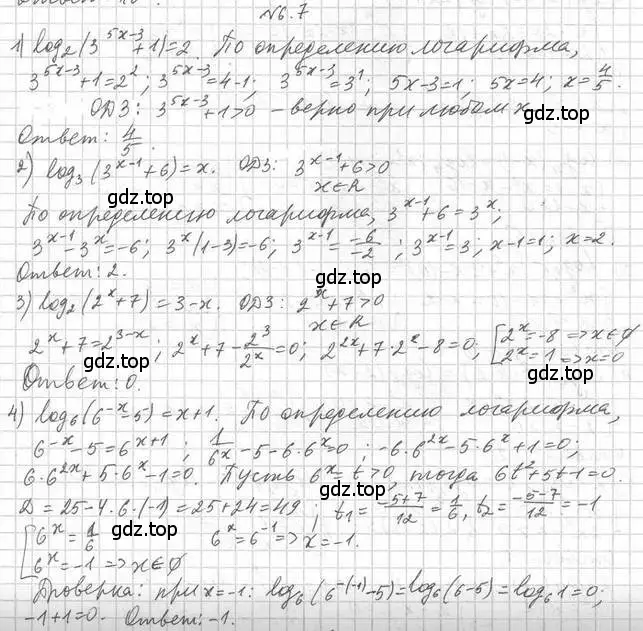 №6.7
1) log₂(3^(5x-3)+1)=2. По определению логарифма,
3^(5x-3)+1=2²; 3^(5x-3)=4-1; 3^(5x-3)=3¹; 5x-3=1; 5x=4; x=4/5.
ОДЗ: 3^(5x-3)+1>0 – верно при любом x
gdz.top
Ответ: 4/5.
gdz.top
2) log₃(3^(x-1)+6)=x. ОДЗ: 3^(x-1)+6>0
x∈R
gdz.top
По определению логарифма, 3^(x-1)+6=3^x;
3^(x-1)-3^x=-6; 3^x(1-3)=-6; 3^(x-1)=-6/-2; 3^(x-1)=3; x-1=1; x=2.
Ответ: 2.
gdz.top
3) log₂(2^x+7)=3-x. ОДЗ: 2^x+7>0
gdz.top
x∈R
2^x+7=2^(3-x); 2^x+7-2³/2^x=0; 2^(2x)+7·2^x-8=0; [2^x=-8=>x∈∅
2^x=1=>x=0
gdz.top
Ответ: 0.
gdz.top
4) log₆(6^(-x)-5)=x+1. По определению логарифма,
6^(-x)-5=6^(x+1); 1/6^x-5-6·6^x=0; -6·6^(2x)-5·6^x+1=0;
gdz.top
6·6^(2x)+5·6^x-1=0. Пусть 6^x=t>0, тогда 6t²+5t-1=0.
gdz.top
D=25-4·6·(-1)=25+24=49; t₁=(-5+7)/12=1/6, t₂=(-5-7)/12=-1
[6^x=1/6 6^x=6^(-1)=>x=-1.
gdz.top
6^x=-1=>x∈∅
Проверка: при x=-1: log₆(6^(-(-1))-5)=log₆(6-5)=log₆1=0;
-1+1=0. Ответ: -1.
gdz.top